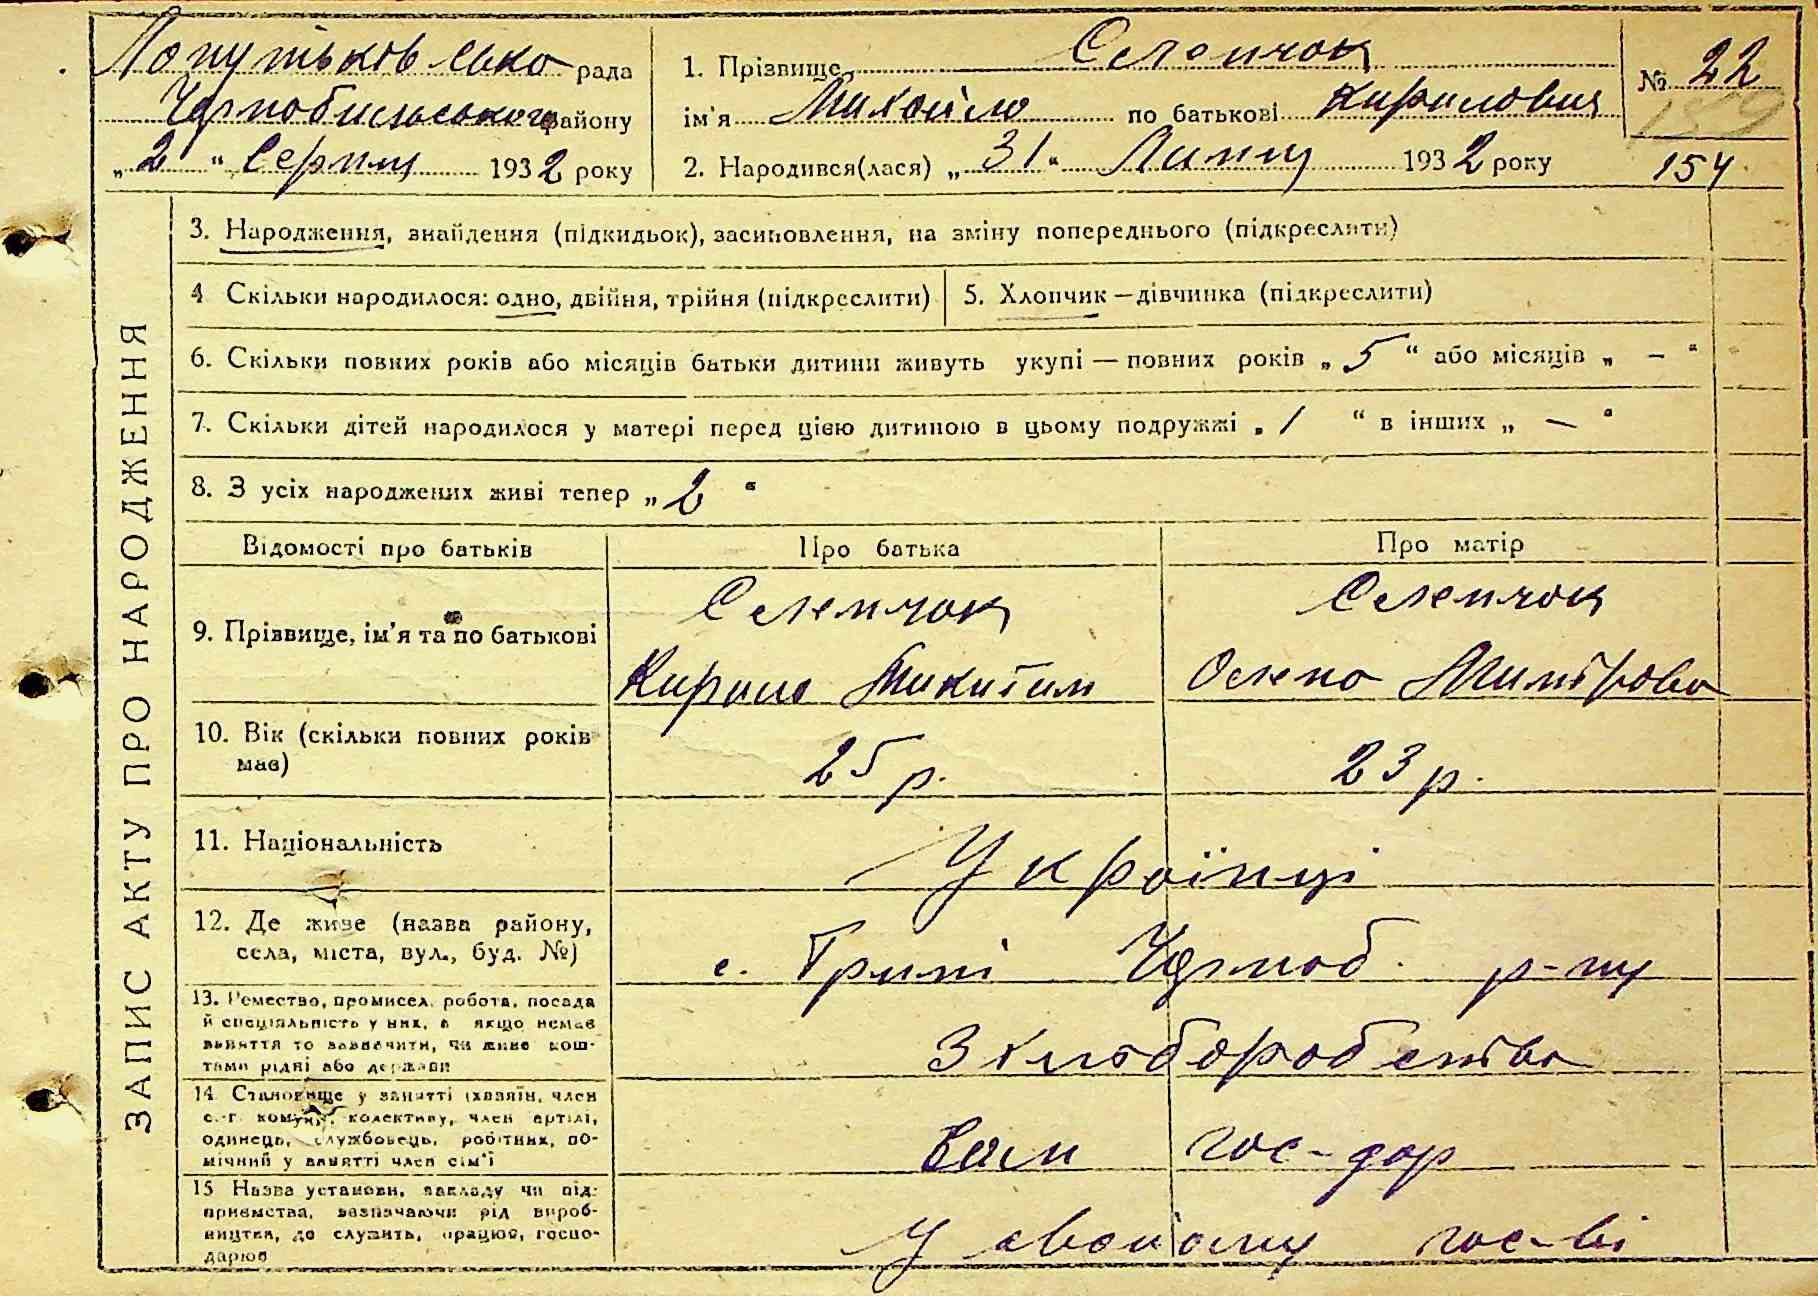 Лопутьківська рада
Чорнобильського району
„2" Серпня 1932 року
1. Прізвище Селепчок
ім'я Михайло по батькові Кирилович
2. Народився(лася) „31" Липня 1932 року
№ 22
159
154
ЗАПИС АКТУ ПРО НАРОДЖЕННЯ
3. Народження, знайдення (підкидьок), засиновлення, на зміну попереднього (підкреслити)
4 Скільки народилося: одно, двійня, трійня (підкреслити)
5. Хлопчик — дівчинка (підкреслити)
6. Скільки повних років або місяців батьки дитини живуть укупі — повних років „5" або місяців „ — "
7. Скільки дітей народилося у матері перед цією дитиною в цьому подружжі „1 " в інших „ — "
8. З усіх народжених живі тепер „2 "
Відомості про батьків
Про батька
Про матір
9. Прізвище, ім'я та по батькові
Селепчок
Кирило Микитин
Селепчок
Олена Митрова
10. Вік (скільки повних років
має)
25 р.
23 р.
11. Національність
Українці
12. Де живе (назва району,
села, міста, вул., буд. №)
с. Грині Чорноб. р-ну
13. Ремество, промисел, робота, посада
й спеціяльність у них, а якщо немає
заняття то зазначити, чи живе кош-
тами рідні або держави
З хліборобства
14 Становище у занятті (хазяїн, член
с.-г. комуни, колективу, член артілі,
одинець, службовець, робітник, по-
мічний у занятті член сім'ї
гос-дар
15 Назва установи, закладу чи під-
приємства, зазначаючи рід вироб-
ництва, де служить, працює, госпо-
дарює
У своїому гос-ві